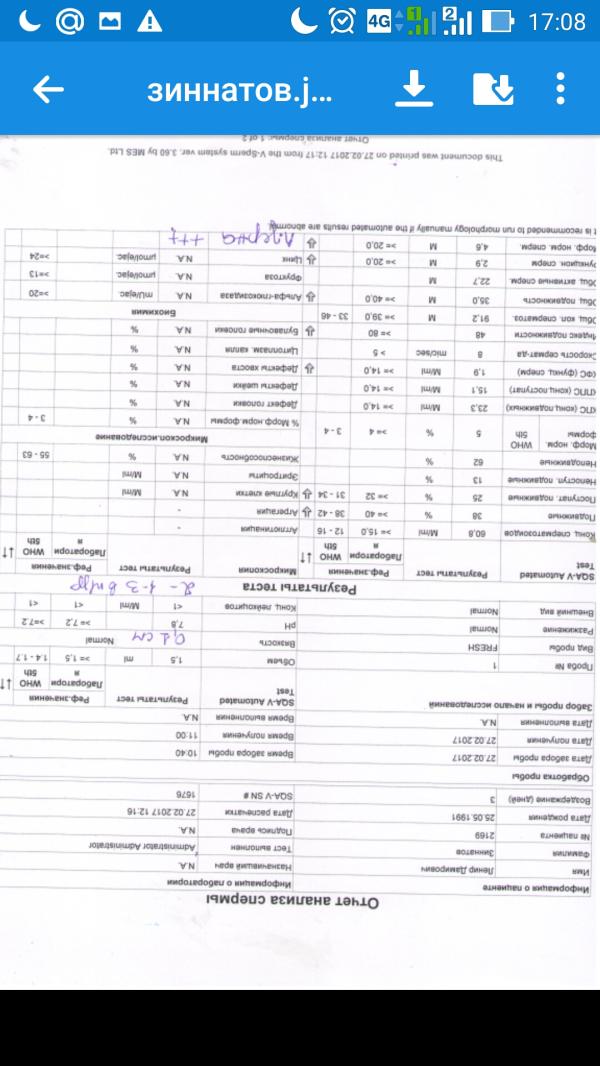 4G 1 2 17:08
зиннатов.j...
Отчет анализа спермы
Информация о пациенте Информация о лаборатории
Имя Ленир Дамирович Назначивший врач N.A.
Фамилия Зиннатов Тест выполнен Administrator Administrator
№ пациента 2169 Подпись врача N.A.
Дата рождения 25.05.1991 Дата распечатки 27.02.2017 12:16
Воздержание (дней) 3 SQA-V SN # 1676
Обработка пробы
Дата забора пробы 27.02.2017 Время забора пробы 10:40
Дата получения 27.02.2017 Время получения 11:00
Дата выполнения N.A. Время выполнения N.A.
Забор пробы и начало исследований SQA-V Automated Test Результаты тест Реф.значения Лаборатория WHO 5th ↑↓
Проба № 1 Объем 1,5 ml >= 1,5 1.4 - 1.7
Вид пробы FRESH Вязкость 0,1 см Normal
Разжижение Normal pH 7,8 >= 7,2 >=7.2
Внешний вид Normal Конц. лейкоцитов <1 M/ml <1 <1
Результаты теста
SQA-V Automated Test Результаты тест Реф.значения Лаборатория WHO 5th ↑↓ Микроскопия Результаты тест Реф.значения Лаборатория WHO 5th ↑↓
Конц. сперматозоидов 60,8 M/ml >= 15,0 12 - 16 Агглютинация -
Подвижные 38 % >= 40 38 - 42 Агрегация -
Поступат. подвижные 25 % >= 32 31 - 34 Круглые клетки N.A. M/ml
Непоступ. подвижные 13 % Эритроциты N.A. M/ml
Неподвижные 62 % Жизнеспособность N.A. % 55 - 63
Морф. норм. формы WHO 5th 5 % >= 4 3 - 4 Микроскоп.исследование
% Морф норм.формы N.A. % 3 - 4
КПС (конц подвижных) 23,3 M/ml Дефект головки N.A. %
КППС (конц поступат) 15,1 M/ml >= 14,0 Дефекты шейки N.A. %
КФС (функц. сперм) 1,9 M/ml >= 14,0 Дефекты хвоста N.A. %
Скорость сермат-да 8 mic/sec > 5 Цитоплазм. капля N.A. %
Индекс подвижности 48 >= 80 Булавочные головки N.A. %
Общ. кол. сперматоз. 91,2 M >= 39,0 33 - 46 Биохимия
Общ. подвижность 35,0 M >= 40,0 Альфа-глюкозидаза N.A. mU/ejac. >=20
Общ. активные сперм. 22,7 M Фруктоза N.A. µmol/ejac. >=13
Функцион. сперм 2,9 M >= 20,0 Цинк N.A. µmol/ejac. >=24
Морф. норм. сперм. 4,6 M >= 20,0
t is recommended to run morphology manually if the automated results are abnormal.
This document was printed on 27.02.2017 12:17 from the V-Sperm system ver. 3.60 by MES Ltd.
Отчет анализа спермы: 1 of 2